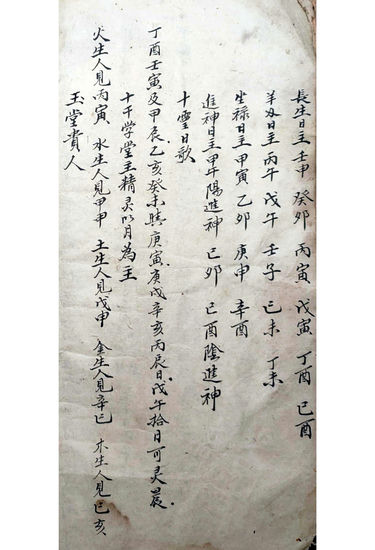 長生日主壬申 癸卯 丙寅 戊寅 丁酉 己酉
羊刃日主丙午 戊午 壬子 己未 丁未
坐禄日主甲寅 乙卯 庚申 辛酉
進神日主甲午陽進神 己卯 己酉陰進神
十靈日歌
丁酉壬寅及甲辰.乙亥癸未 庚寅.庚戌辛亥丙辰日.戊午拾日可灵晨.
十干学堂主精灵以月為主
火生人見丙寅 水生人見甲申 土生人見戊申 金生人見辛巳 木生人見己亥
玉堂貴人